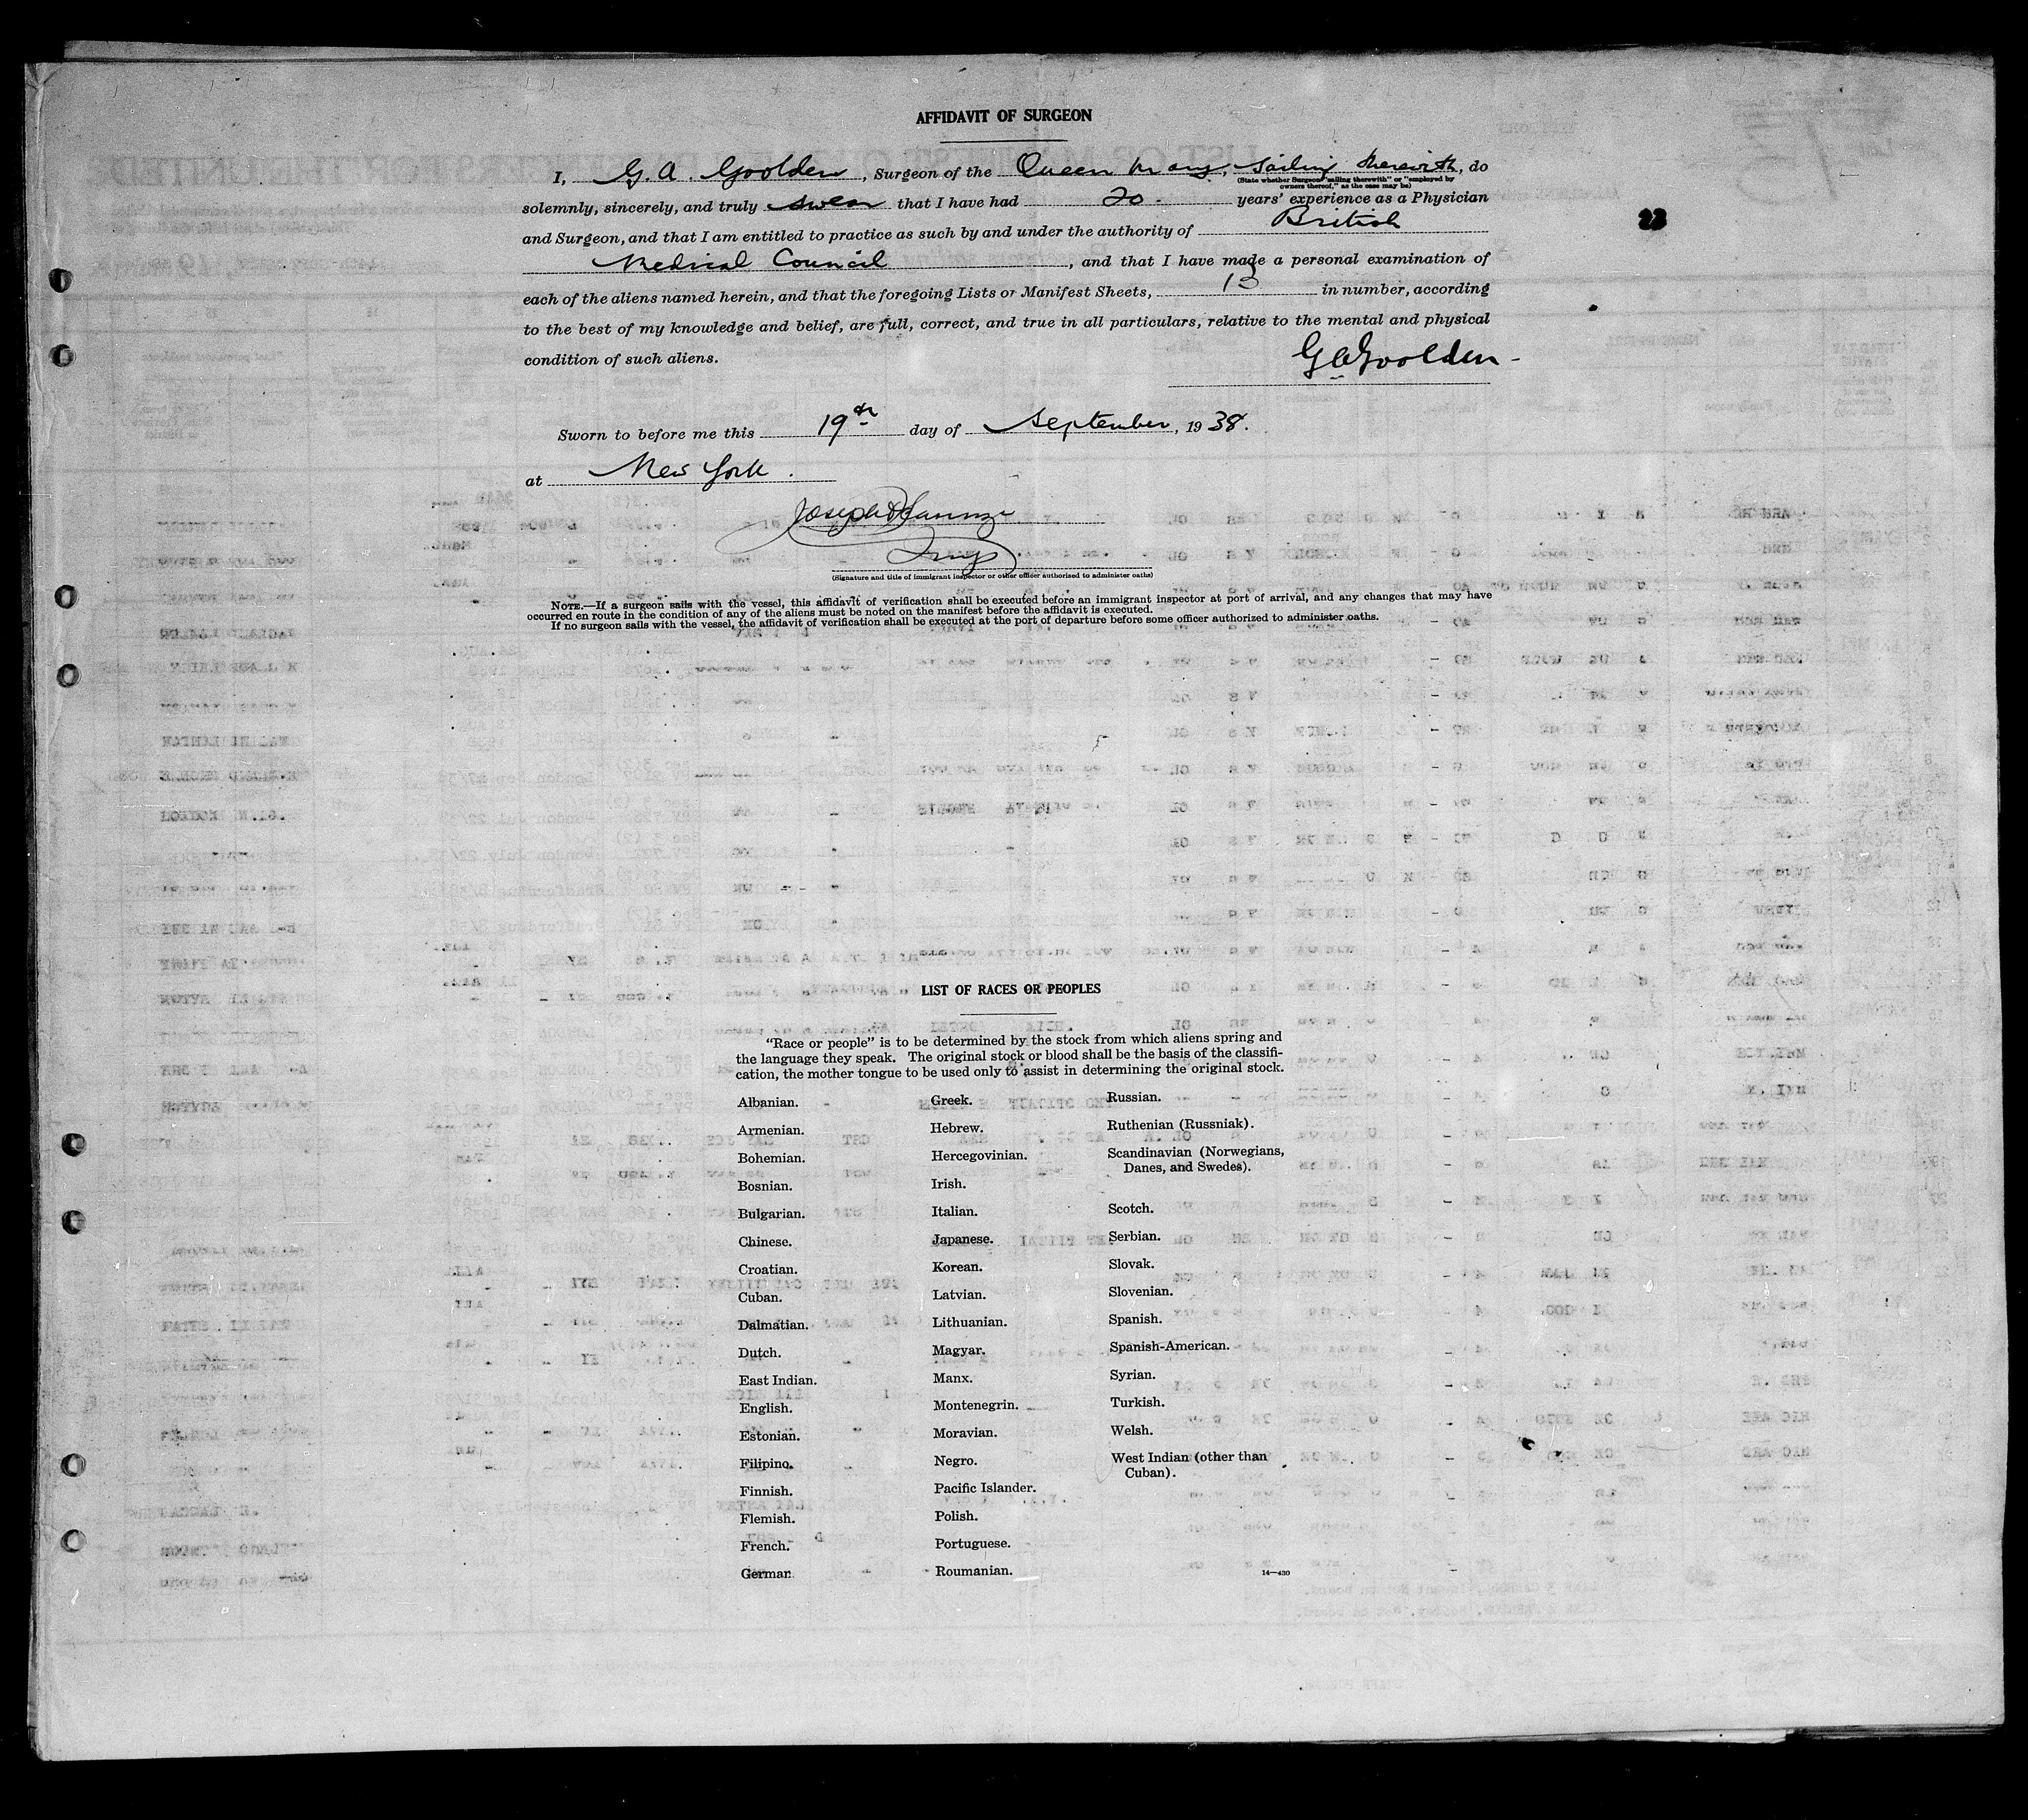 AFFIDAVIT OF SURGEON
I, G. A. Goolden, Surgeon of the Queen Mary, sailing therewith, do
(State whether Surgeon "sailing therewith" or "employed by
owners thereof," as the case may be)
solemnly, sincerely, and truly swear that I have had 20. years' experience as a Physician
and Surgeon, and that I am entitled to practice as such by and under the authority of British
Medical Council, and that I have made a personal examination of
each of the aliens named herein, and that the foregoing Lists or Manifest Sheets, 13 in number, according
to the best of my knowledge and belief, are full, correct, and true in all particulars, relative to the mental and physical
condition of such aliens.
G A Goolden
Sworn to before me this 19th day of September, 1938.
at New York.
Joseph
(Signature and title of immigrant inspector or other officer authorized to administer oaths)
NOTE.—If a surgeon sails with the vessel, this affidavit of verification shall be executed before an immigrant inspector at port of arrival, and any changes that may have
occurred en route in the condition of any of the aliens must be noted on the manifest before the affidavit is executed.
If no surgeon sails with the vessel, the affidavit of verification shall be executed at the port of departure before some officer authorized to administer oaths.
LIST OF RACES OR PEOPLES
"Race or people" is to be determined by the stock from which aliens spring and
the language they speak. The original stock or blood shall be the basis of the classifi-
cation, the mother tongue to be used only to assist in determining the original stock.
Albanian.
Armenian.
Bohemian.
Bosnian.
Bulgarian.
Chinese.
Croatian.
Cuban.
Dalmatian.
Dutch.
East Indian.
English.
Estonian.
Filipino.
Finnish.
Flemish.
French.
German.
Greek.
Hebrew.
Hercegovinian.
Irish.
Italian.
Japanese.
Korean.
Latvian.
Lithuanian.
Magyar.
Manx.
Montenegrin.
Moravian.
Negro.
Pacific Islander.
Polish.
Portuguese.
Roumanian.
Russian.
Ruthenian (Russniak).
Scandinavian (Norwegians,
Danes, and Swedes).
Scotch.
Serbian.
Slovak.
Slovenian.
Spanish.
Spanish-American.
Syrian.
Turkish.
Welsh.
West Indian (other than
Cuban).
14—430